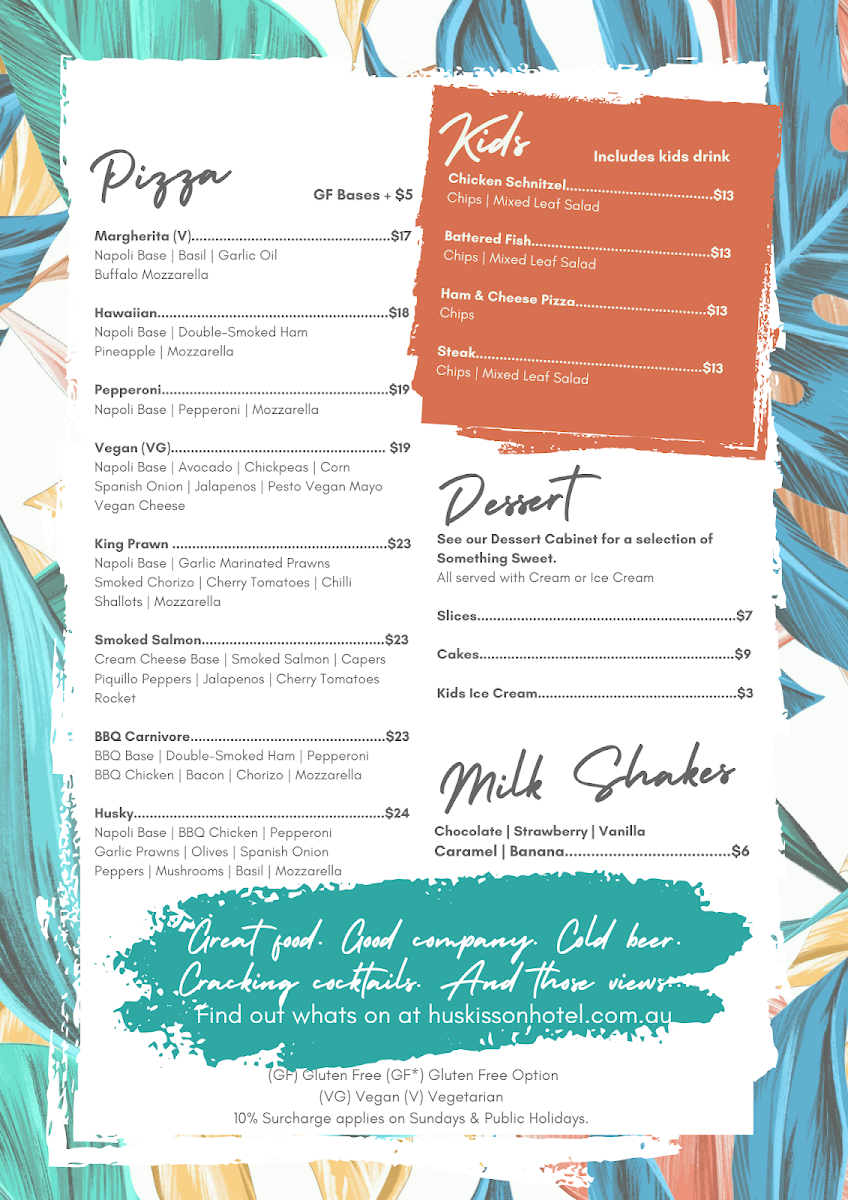 Pizza
GF Bases + $5
Margherita (V)..................................................$17
Napoli Base | Basil | Garlic Oil
Buffalo Mozzarella
Hawaiian..........................................................$18
Napoli Base | Double-Smoked Ham
Pineapple | Mozzarella
Pepperoni.........................................................$19
Napoli Base | Pepperoni | Mozzarella
Vegan (VG)...................................................... $19
Napoli Base | Avocado | Chickpeas | Corn
Spanish Onion | Jalapenos | Pesto Vegan Mayo
Vegan Cheese
King Prawn ......................................................$23
Napoli Base | Garlic Marinated Prawns
Smoked Chorizo | Cherry Tomatoes | Chilli
Shallots | Mozzarella
Smoked Salmon..............................................$23
Cream Cheese Base | Smoked Salmon | Capers
Piquillo Peppers | Jalapenos | Cherry Tomatoes
Rocket
BBQ Carnivore.................................................$23
BBQ Base | Double-Smoked Ham | Pepperoni
BBQ Chicken | Bacon | Chorizo | Mozzarella
Husky...............................................................$24
Napoli Base | BBQ Chicken | Pepperoni
Garlic Prawns | Olives | Spanish Onion
Peppers | Mushrooms | Basil | Mozzarella
Kids
Includes kids drink
Chicken Schnitzel.....................................$13
Chips | Mixed Leaf Salad
Battered Fish.............................................$13
Chips | Mixed Leaf Salad
Ham & Cheese Pizza.................................$13
Chips
Steak.........................................................$13
Chips | Mixed Leaf Salad
Dessert
See our Dessert Cabinet for a selection of
Something Sweet.
All served with Cream or Ice Cream
Slices.................................................................$7
Cakes................................................................$9
Kids Ice Cream..................................................$3
Milk Shakes
Chocolate | Strawberry | Vanilla
Caramel | Banana...................................$6
Great food. Good company. Cold beer.
Cracking cocktails. And those views...
Find out whats on at huskissonhotel.com.au
(GF) Gluten Free (GF*) Gluten Free Option
(VG) Vegan (V) Vegetarian
10% Surcharge applies on Sundays & Public Holidays.